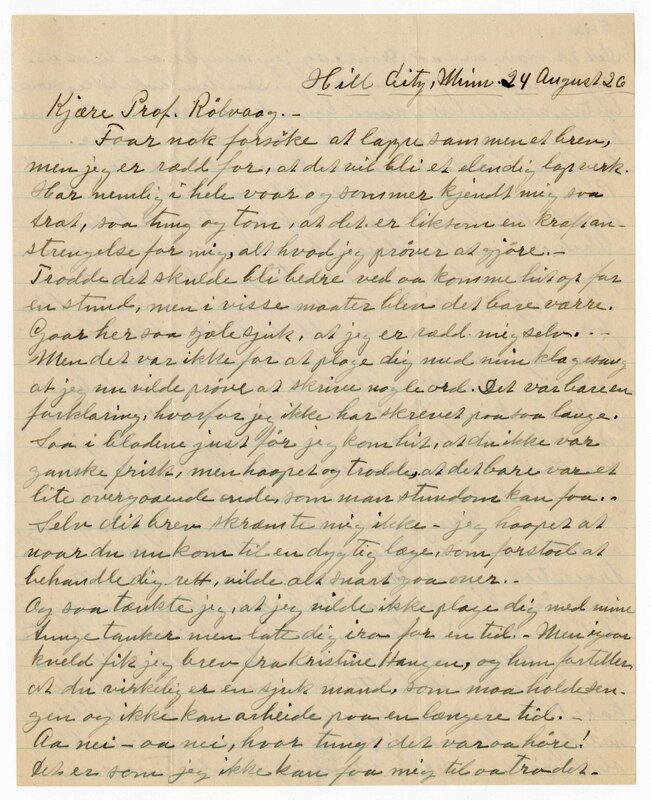 Hill City, Minn 24 August 26
Kjære Prof. Rölvaag. –
Faar nok forsöke at lappe sammen et brev,
men jeg er rædd for, at det vil bli et elendig lapverk.
Har nemlig i hele vaar og sommer kjendt mig saa
træt, saa tung og tom, at det er liksom en kraftan-
strengelse for mig, alt hvad jeg pröver at gjöre. –
Trodde det skulde bli bedre ved aa komme hit op for
en stund, men i visse maater blev det bare værre.
Gaar her saa sjæle sjuk, at jeg er rædd mig selv. . –
Men det var ikke for at plage dig med min klagesang
at jeg nu vilde pröve at skrive nogle ord. Det var bare en
forklaring, hvorfor jeg ikke har skrevet paa saa længe.
Saa i bladene just för jeg kom hit, at du ikke var
ganske frisk, men haapet og trodde, at det bare var et
lite overgaaende onde, som man stundom kan faa. .
Selv dit brev skræmte mig ikke – jeg haapet at
naar du nu kom til en dygtig læge, som forstod at
behandle dig rett, vilde alt snart gaa over. .
Og saa tænkte jeg, at jeg vilde ikke plage dig med mine
tunge tanker men late dig i ro for en tid. – Men igaar
kveld fik jeg brev fra Kristine Haugen, og hun fortæller,
at du virkelig er en sjuk mand, som maa holde sen-
gen og ikke kan arbeide paa en længere tid. –
Aa nei – aa nei, hvor tungt det var aa höre!
Det er som jeg ikke kan faa mig til aa tro det. –